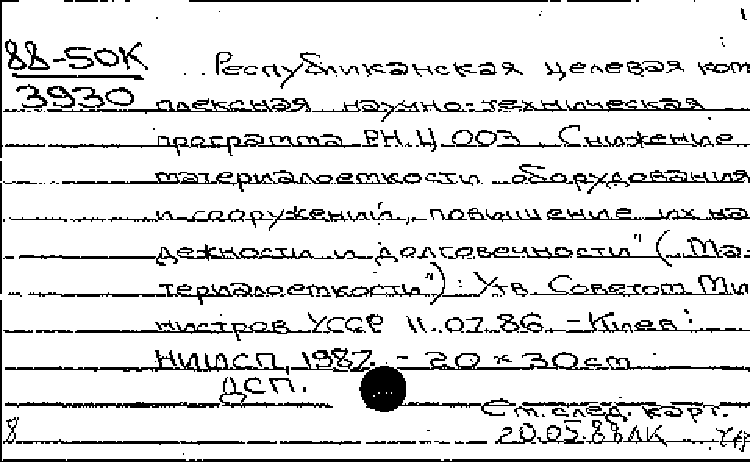 88-50К
3930
Республиканская целевая ком
плексная научно-техническая
программа РН.Ц.003 „Снижение
материалоемкости оборудования
и сооружений, повышение их на
дежности и долговечности" („Ма-
териалоемкости"): Утв. Советом Ми
нистров УССР 11.02.86. - Киев:
1987. - 20 × 30 cm
ДСП.
См. след. карт.
8